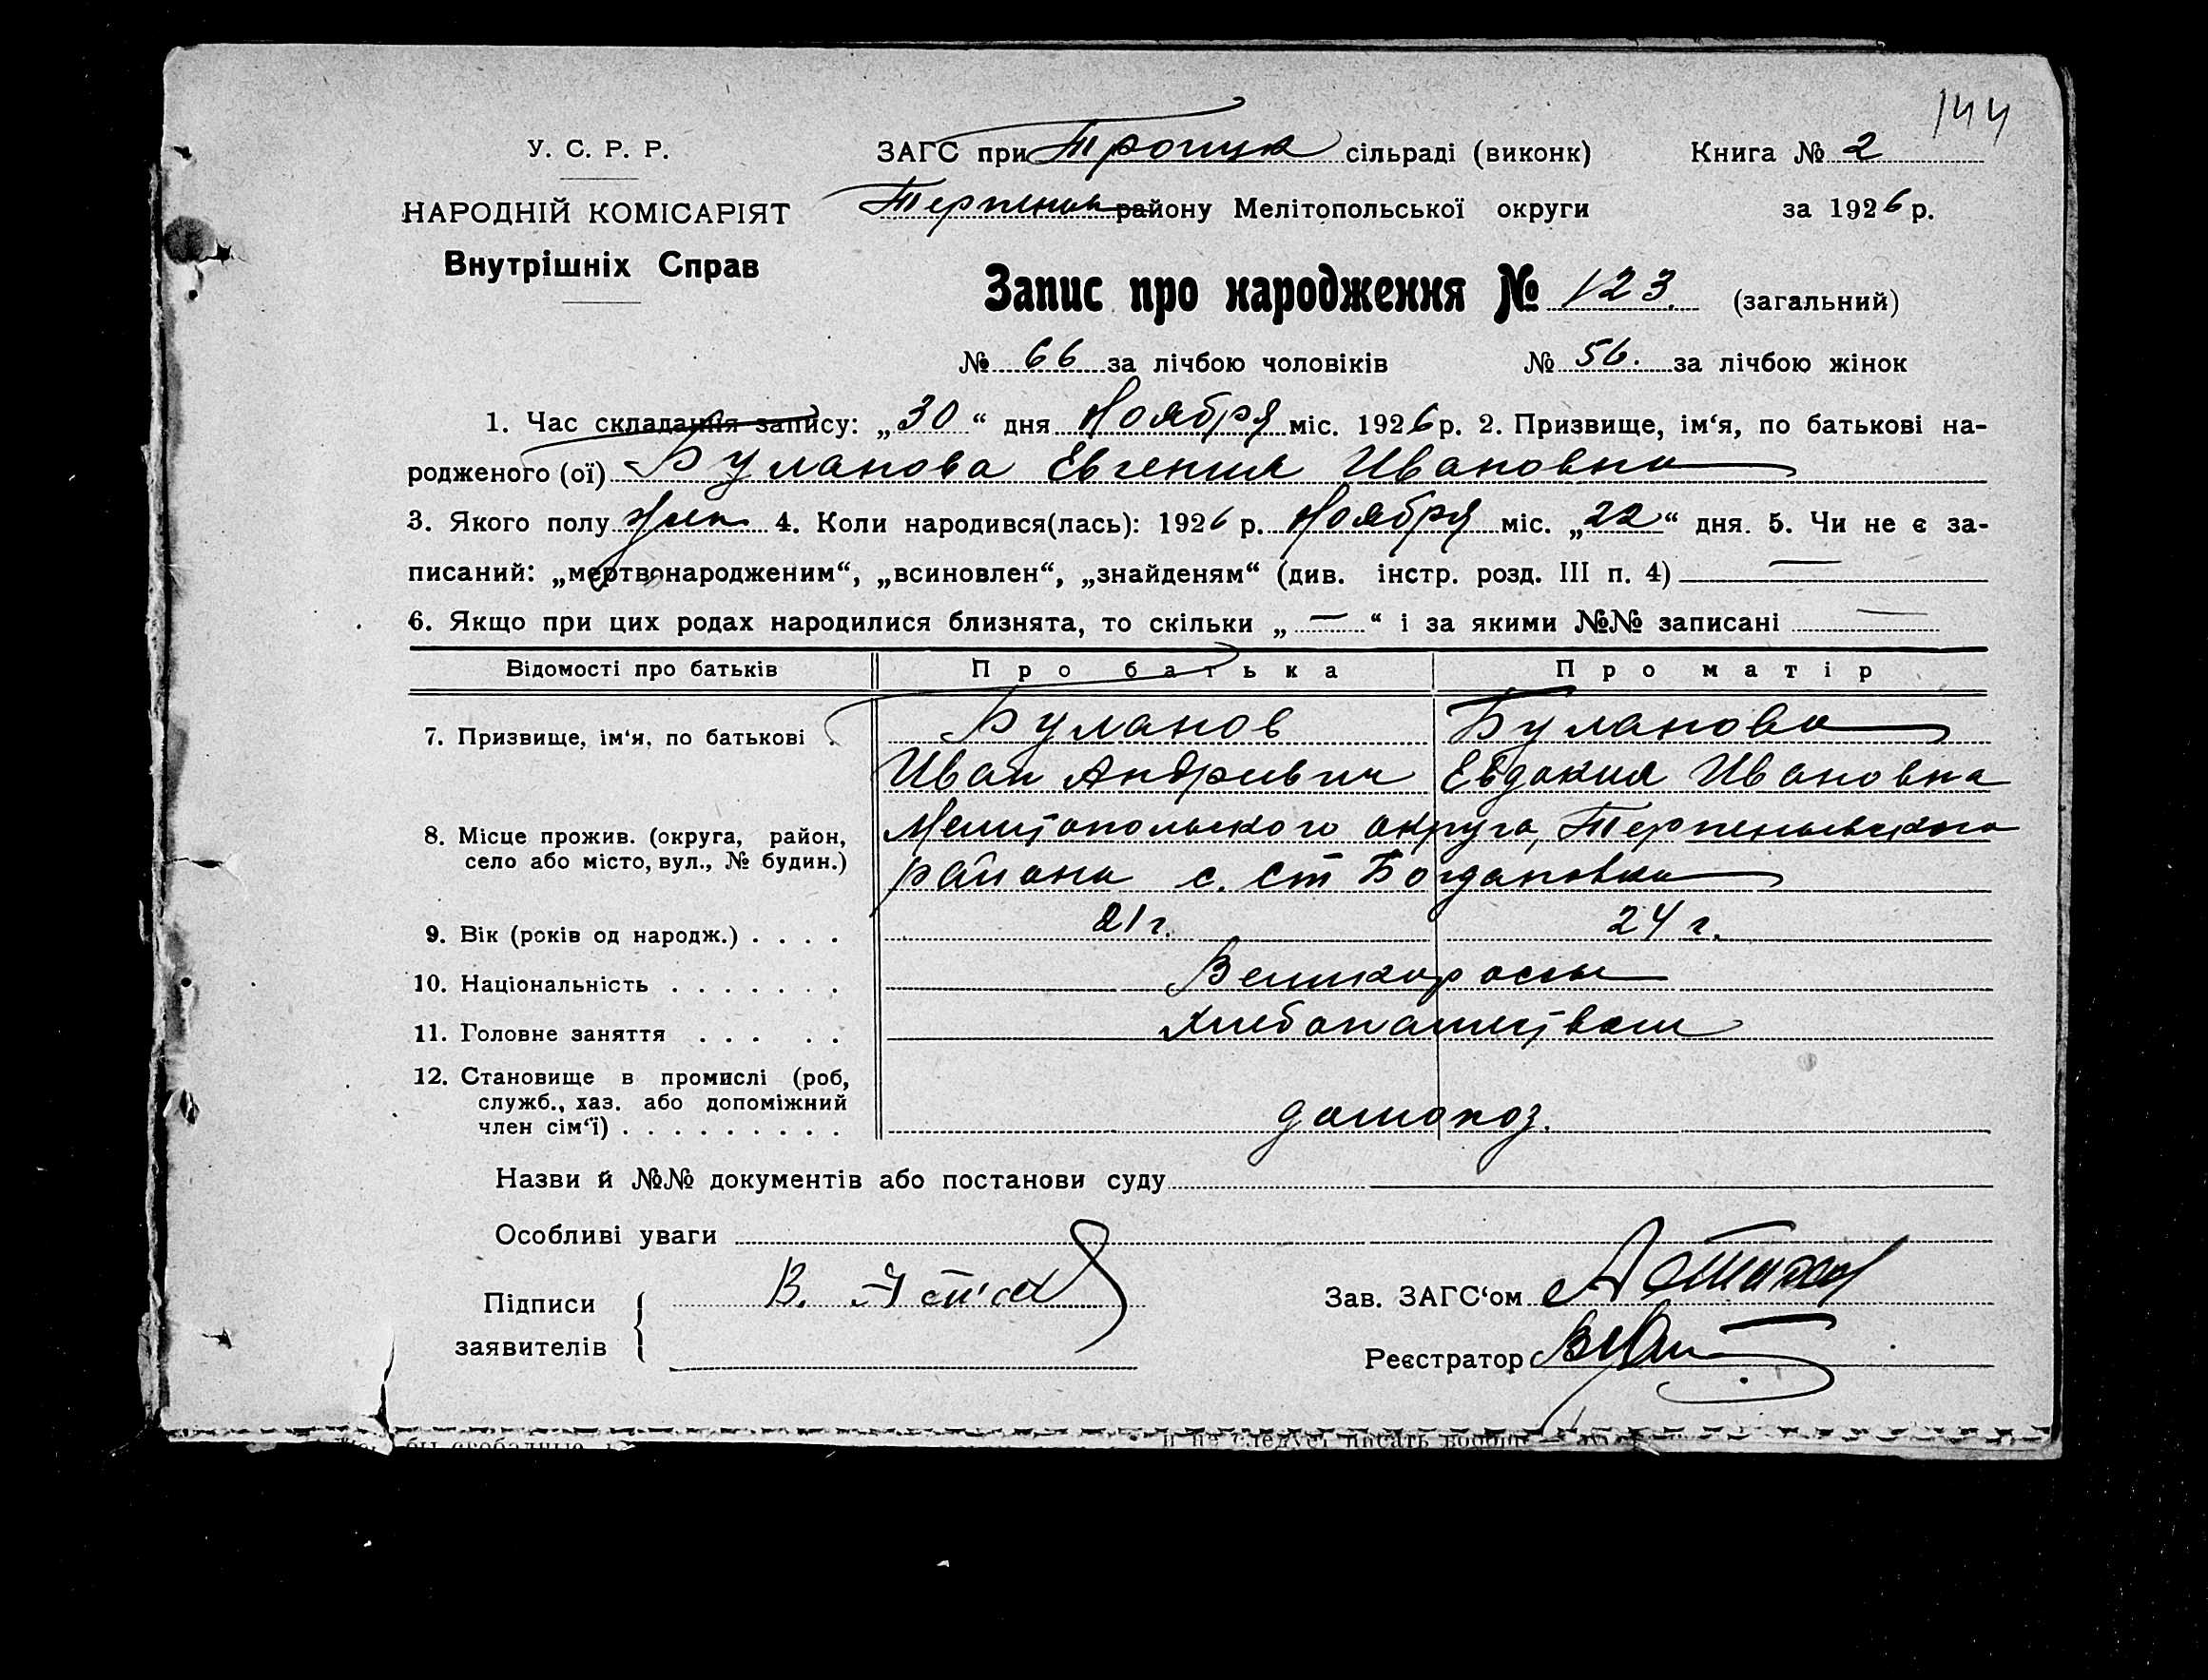 144
У. С. Р. Р.
НАРОДНІЙ КОМІСАРІЯТ
Внутрішніх Справ
ЗАГС при Троицк сільраді (виконк)
Терпенск району Мелітопольської округи
Книга № 2
за 1926 р.
Запис про народження № 123. (загальний)
№ 66 за лічбою чоловіків № 56. за лічбою жінок
1. Час складання запису: „30“ дня Ноября міс. 1926 р. 2. Призвище, ім‘я, по батькові на-
родженого (ої) Буланова Евгения Ивановна
3. Якого полу жен 4. Коли народився(лась): 1926 р. Ноября міс. „22“ дня. 5. Чи не є за-
писаний: „мертвонародженим“, „всиновлен“, „знайденям“ (див. інстр. розд. III п. 4) —
6. Якщо при цих родах народилися близнята, то скільки „—“ і за якими №№ записані —
Відомості про батьків Про батька Про матір
7. Призвище, ім‘я, по батькові . Буланов Буланова
Иван Андреевич Евдокия Ивановна
8. Місце прожив. (округа, район, Мелитопольского округа, Терпеньевского
село або місто, вул., № будин.) района с. ст Богдановка
9. Вік (років од народж.) . . . . 21 г. 24 г.
10. Національність . . . . . . . Великороссы
11. Головне заняття . . . . . Хлебопашеством
12. Становище в промислі (роб,
служб., хаз. або допоміжний
член сім‘ї) . . . . . . . . . домохоз.
Назви й №№ документів або постанови суду
Особливі уваги
Підписи В.
заявителів
Зав. ЗАГС‘ом
Реєстратор
и не следует писать вообще